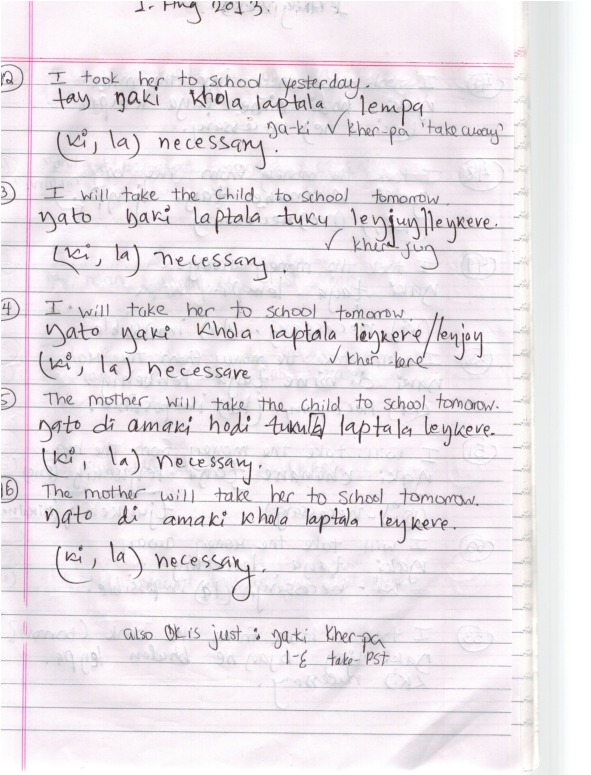 1. Aug 2013.
12 I took her to school yesterday.
tay ŋaki khola laptala lempa
ŋa-ki ✓ kher-pa 'take away'
(ki, la) necessary.
3 I will take the child to school tomorrow.
ŋato ŋaki laptala tuku leyjuŋ/leykere.
✓ kher-juŋ
(ki, la) necessary.
4 I will take her to school tomorrow.
ŋato ŋaki khola laptala leykere/leyjoy
✓ kher-kere
(ki, la) necessare
5 The mother will take the child to school tomorow.
ŋato di amaki hodi tukula laptala leykere.
(ki, la) necessary.
16 The mother will take her to school tomorrow.
ŋato di amaki khola laptala leykere.
(ki, la) necessary.
also OK is just : ŋa-ki kher-pa
1-E take-PST